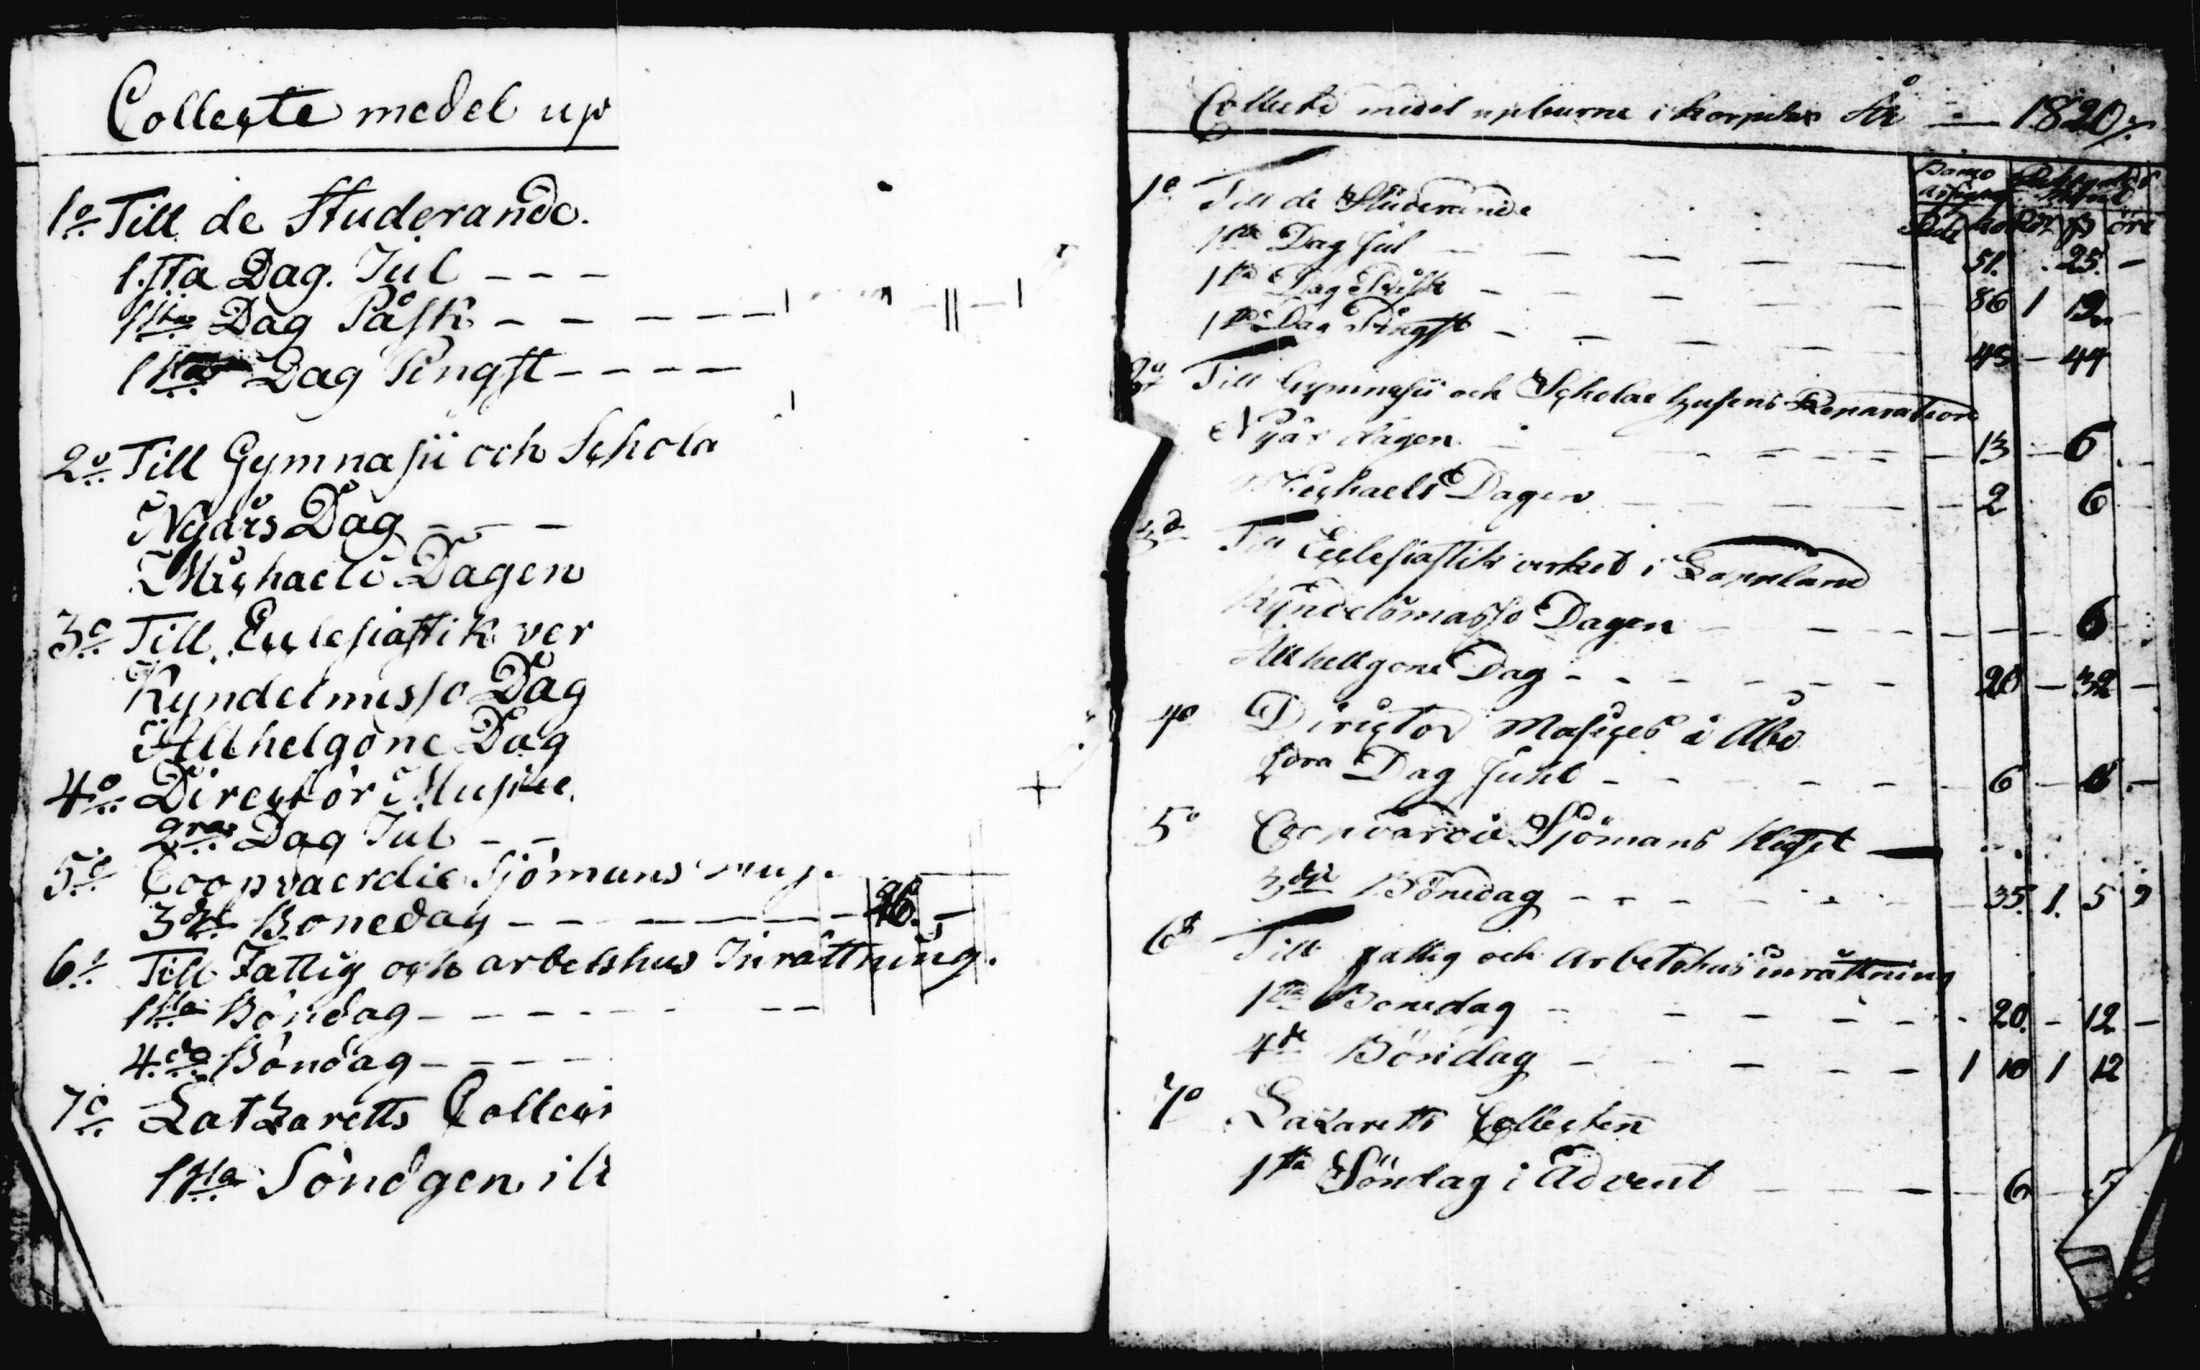 Collecte medel up
1o Till de Studerande.
1sta Dag. Jul - - -
1sta Dag Påsk - - - - - -
1sta Dag Pingst - - - -
2o Till Gymnasii och Schola
Nyårs Dag - - -
Michaels Dagen
3o Till Ecclesiastik ver
Kyndelmisso Dag
Allhelgone Dag
4o Director Musices
Dag Jul - -
5o Coopvaerdie Sjömans
3dje Bonedag - - - - - - 26. -
6o Till Fattig och arbetshus Inrättning.
1sta Böndag - - - - - -
4de Böndag - - - -
7o Latzaretts Collect
1sta Söndgen i
Collecte medel upburne i Korpılax År - 1820
1o Till de Studerande
1sta Dag Jul - - - - 51. . 25. -
1sta Dag Påsk - - - - 86 1 12 -
1sta Dag Pingst - - - - 45 - 44
2o Till Gymnasii och Scholae husens Reparation
Nyårs dagen - - - - 13 - 6 -
Michaels Dagen - - - - 2 6
3o Till Ecclesiastik verket i Lappland
Kyndelsmässo Dagen - - - - 6
Allhellgone Dag - - - - 20 - 32 -
4o Director Musices i Åbo
Dag Jule - - - - 6 - -
5o Coopvardie Sjömans Huset
3dje Bönedag - - - - 35. 1. 5 9
6o Till fattig och arbetshus inrättning
1sta Bonedag - - - - 20. - 12 -
4de Böndag - - - - 1 10 1 12
7o Lazaretts Collecten
1sta Söndag i Advent - - - - 6 - 5